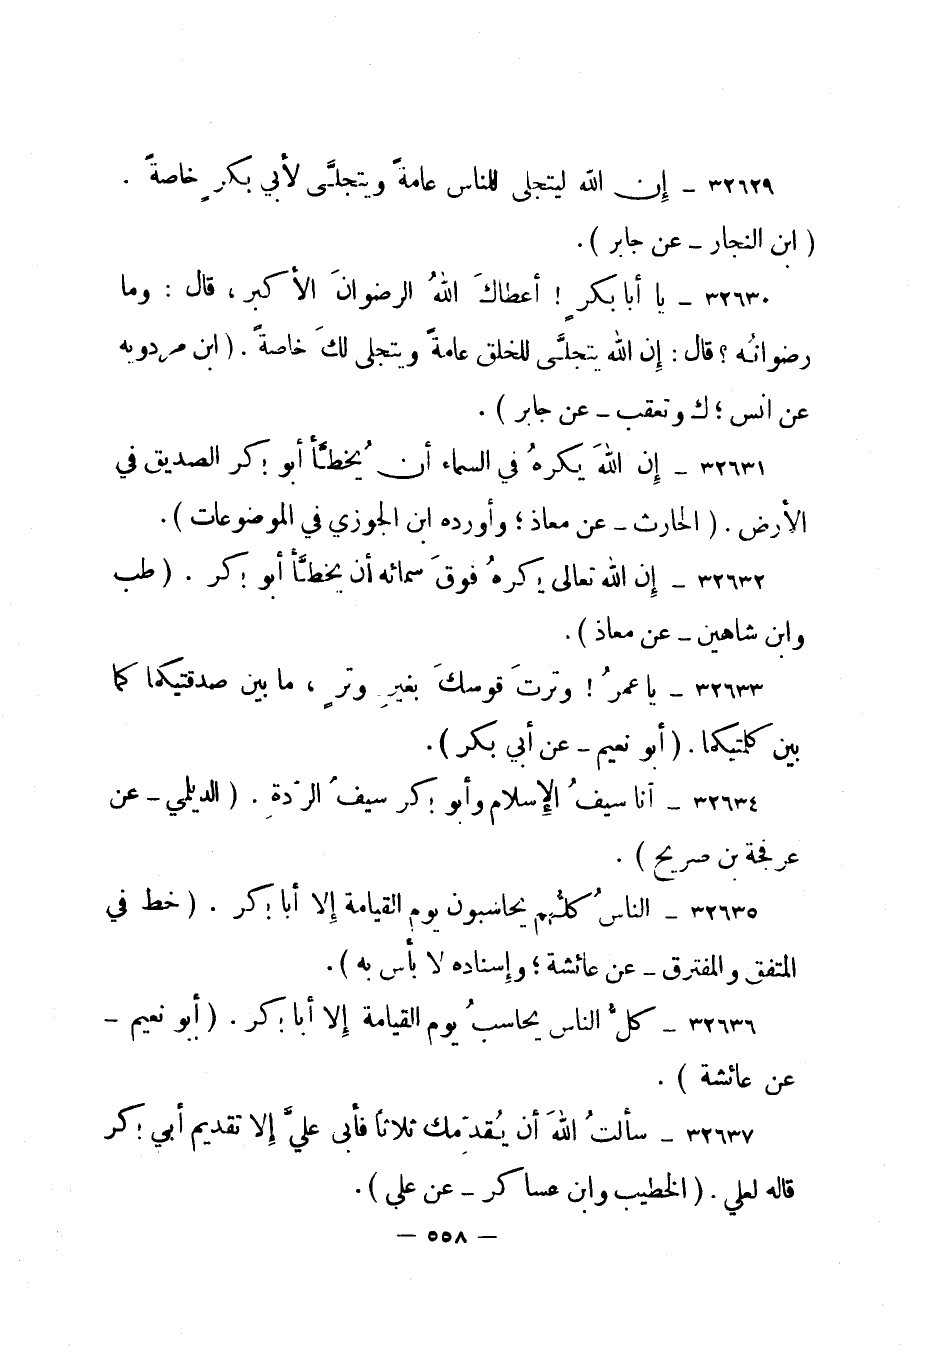 ٣٢٦٢٩ ـ إِن الله ليتجلى للناس عامةً ويتجلَّى لأبي بكرٍ خاصةً .
( ابن النجار ـ عن جابر ) .
٣٢٦٣٠ ـ يا أبا بكرٍ ! أعطاكَ اللهُ الرضوانَ الأكبر ، قال : وما
رضوانُه ؟ قال : إِن الله يتجلَّى للخلق عامةً ويتجلى لكَ خاصةً . ( ابن مردويه
عن انس ؛ ك وتعقب ـ عن جابر ) .
٣٢٦٣١ ـ إِن اللهَ يكرهُ في السماء أن يُخطَّأَ أبو بكر الصديق في
الأرض . ( الحارث ـ عن معاذ ؛ وأورده ابن الجوزي في الموضوعات ) .
٣٢٦٣٢ ـ إِن الله تعالى يكرهُ فوقَ سمائه أن يخطَّأَ أبو بكر . ( طب
وابن شاهين ـ عن معاذ ) .
٣٢٦٣٣ ـ يا عمرُ ! وترتَ قوسكَ بغيرِ وترٍ ، ما بين صدقتيكما كما
بين كلمتيكما . ( أبو نعيم ـ عن أبي بكر ) .
٣٢٦٣٤ ـ أنا سيفُ الإِسلام وأبو بكر سيفُ الردَّةِ . ( الديلمي ـ عن
عرفجة بن صريح ) .
٣٢٦٣٥ ـ الناسُ كلُّهم يحاسبون يوم القيامة إِلا أبا بكر . ( خط في
المتفق والمفترق ـ عن عائشة ؛ وإِسناده لا بأس به ) .
٣٢٦٣٦ ـ كلُّ الناس يحاسبُ يوم القيامة إِلا أبا بكر . ( أبو نعيم ـ
عن عائشة ) .
٣٢٦٣٧ ـ سألتُ اللهَ أن يُقدِّمك ثلاثاً فأبى عليَّ إِلا تقديم أبي بكر
قاله لعلي . ( الخطيب وابن عساكر ـ عن علي ) .
— ٥٥٨ —